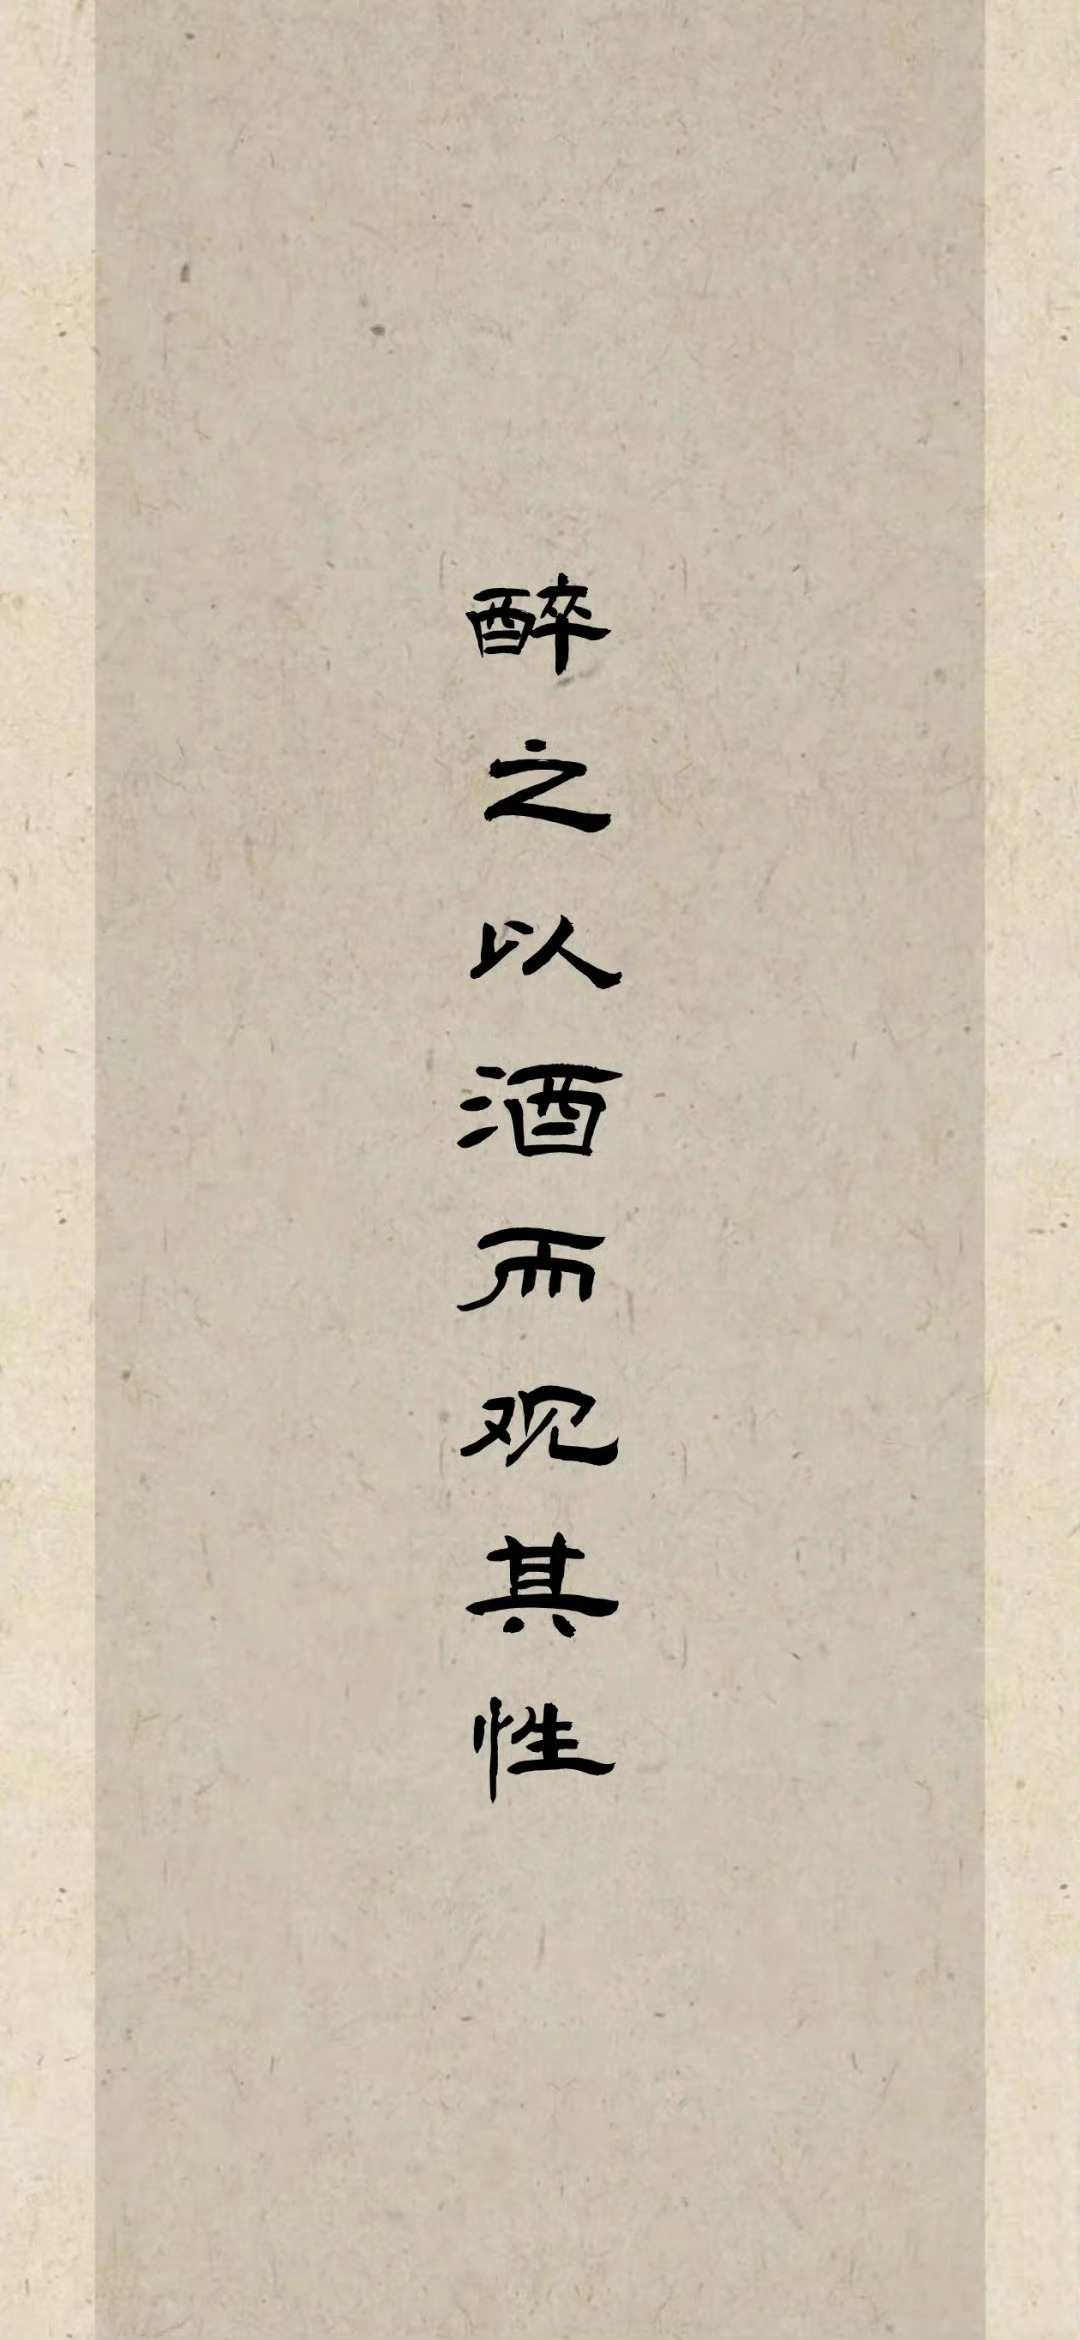 醉之以酒而观其性